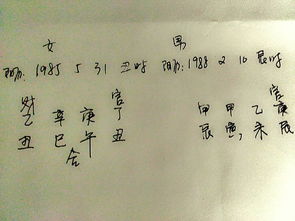 女 男
阳历:1985 5 31 丑时 阴历:1988 2 10 辰时
财 官 官
乙 辛 庚 丁 甲 甲 乙 庚
丑 巳 午 丑 辰 寅, 未 辰
合